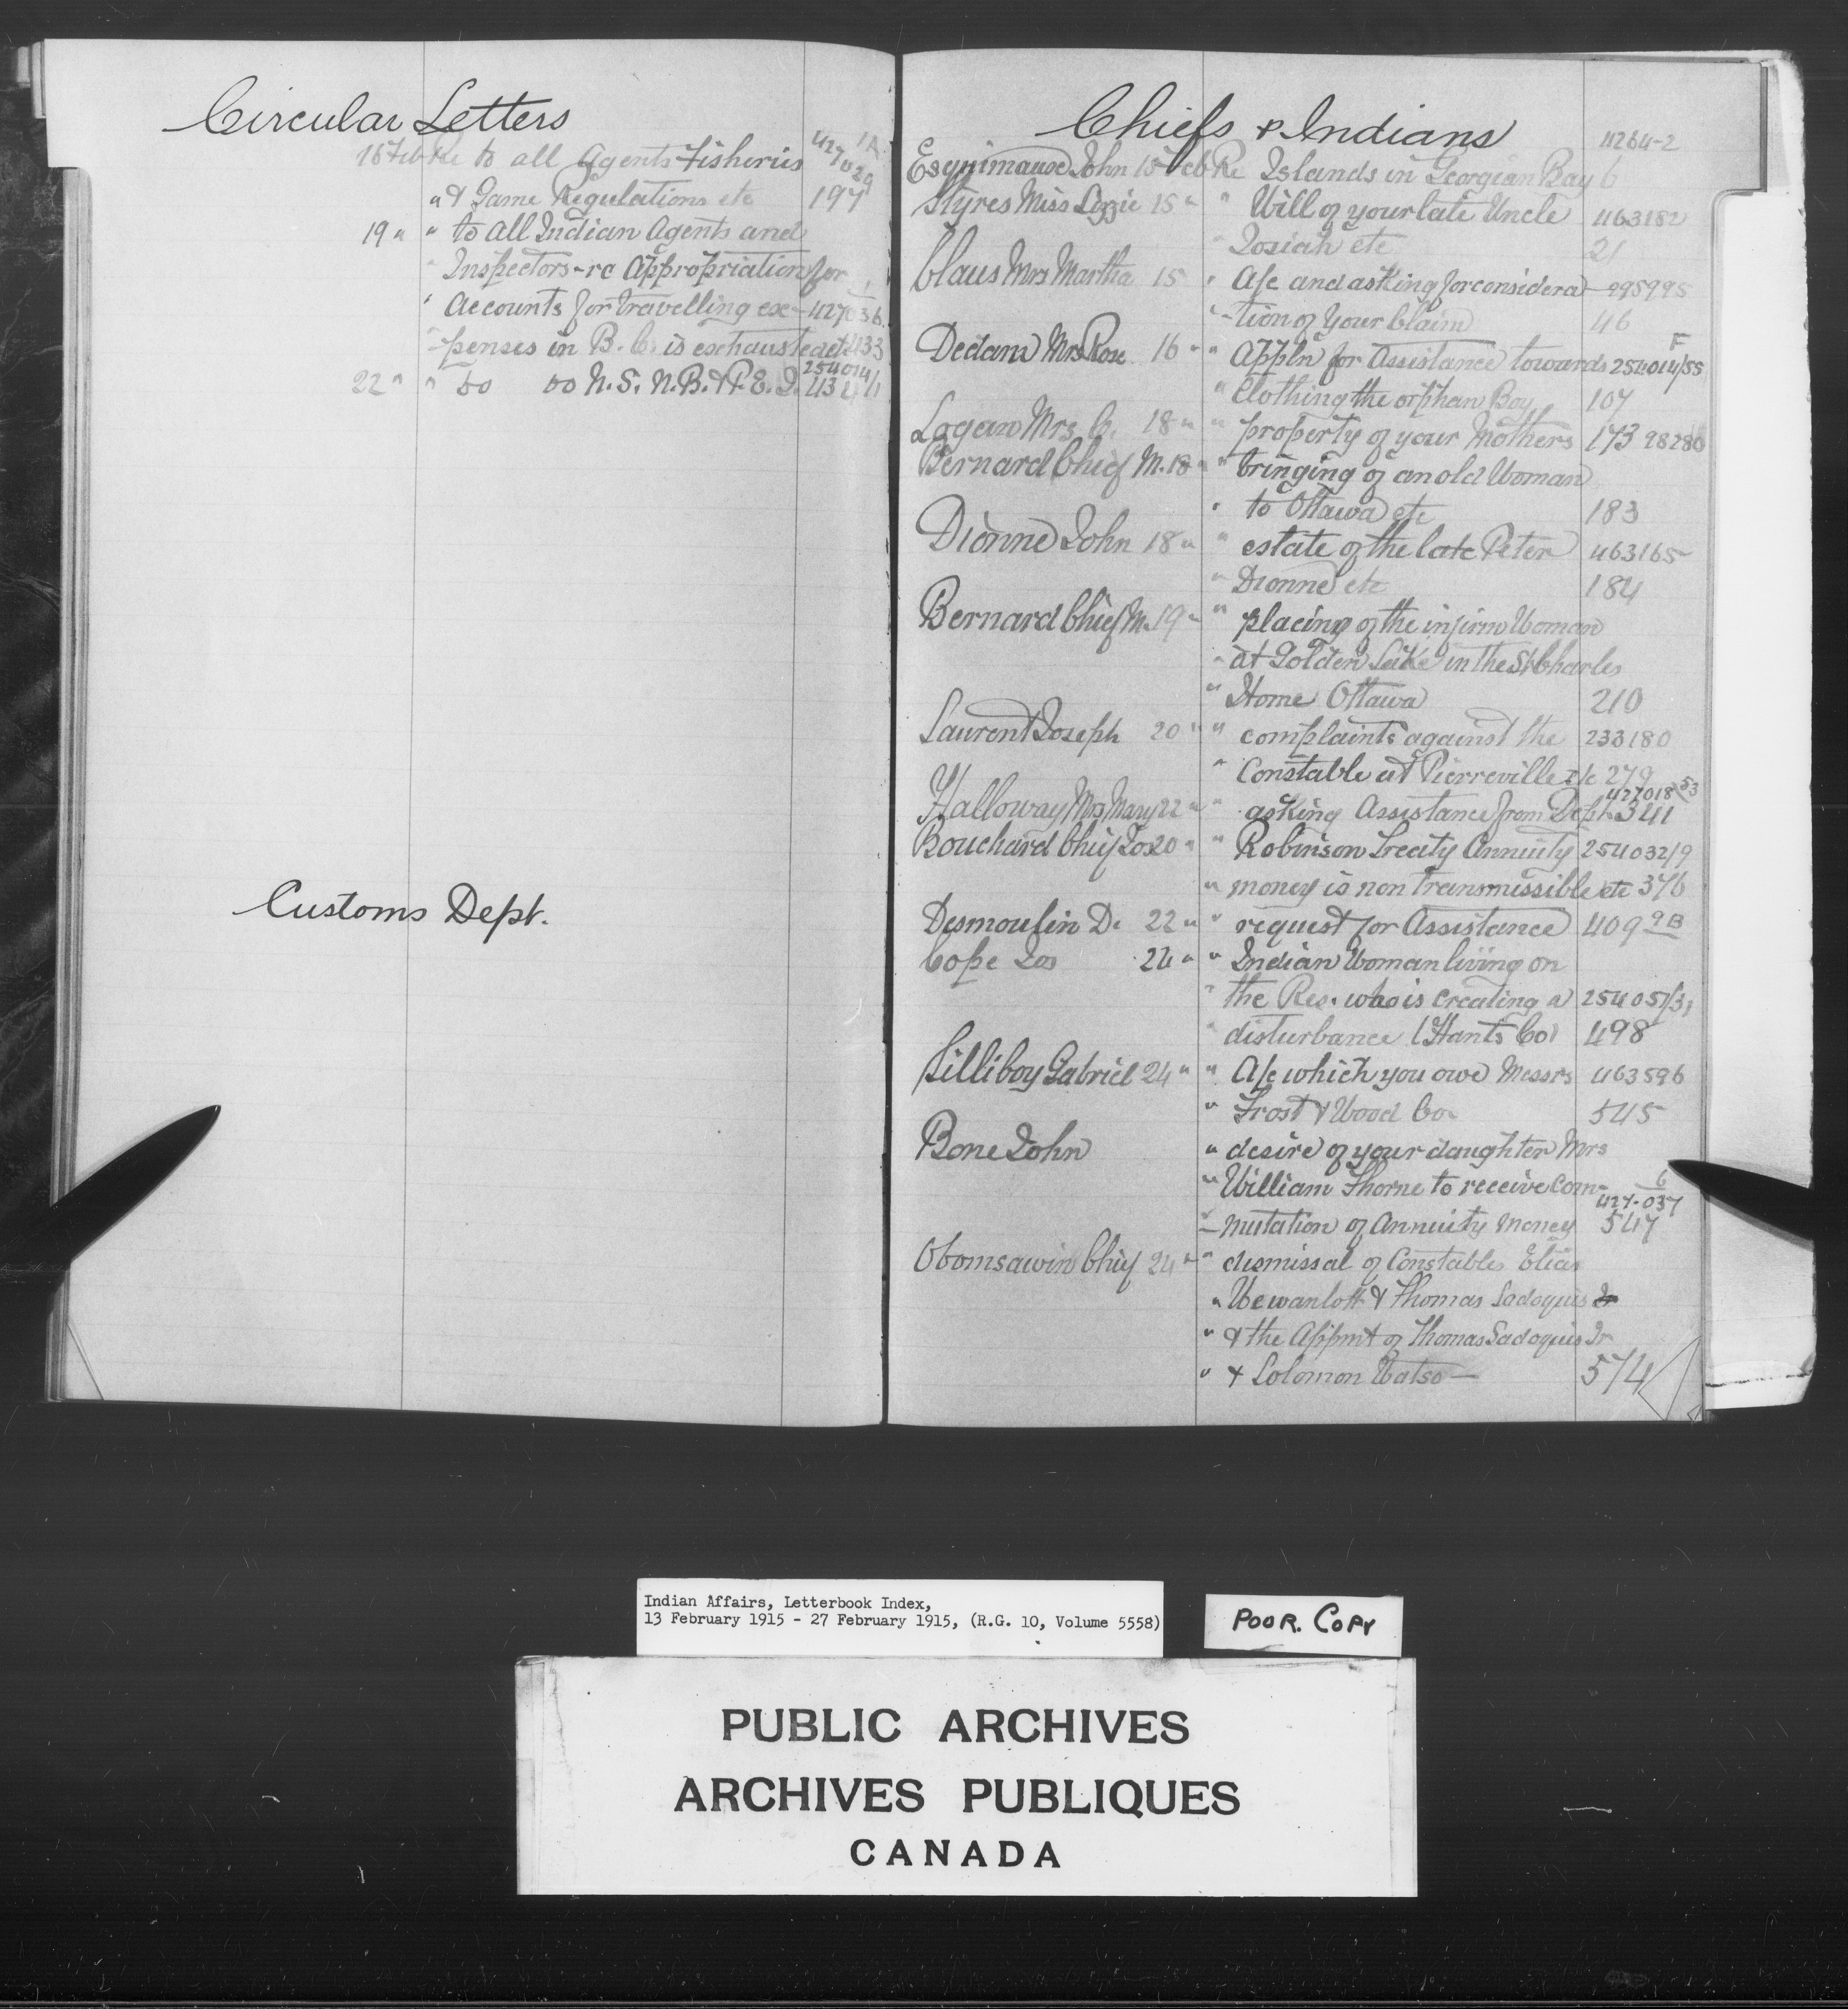 Circular Letters
1A
427029
16 Feb Re to all Agents Fisheries
" & Game Regulations etc 197
19 " " to all Indian Agents and
" Inspectors - re Appropriation for
" Accounts for travelling ex- 427036
- penses in B.C. is exhausted etc 433
254014/1
22 " " do do N.S. N.B. & P.E.I. 434
Customs Dept.
Chiefs & Indians
11264-2
Esquimaux John 15 Feb Re Islands in Georgian Bay 6
Styres Miss Lizzie 15 " " Will of your late Uncle 463182
" Josiah etc 21
Claus Mrs Martha 15 " A/c and asking for considera- 295995
" -tion of your Claim 46
F
Dedam Mrs Rose 16 " " Appln for Assistance towards 254014/55
" Clothing the orphan Boy 107
Logan Mrs C. 18 " " property of your Mothers 173 98280
Bernard Chief M. 18 " " bringing of an old Woman
" to Ottawa etc 183
Dionne John 18 " " estate of the late Peter 463165
" Dionne etc 184
Bernard Chief M. 19 " " placing of the infirm Woman
" at Golden Lake in the St Charles
" Home Ottawa 210
Laurent Joseph 20 " " complaints against the 233180
" Constable at Pierreville etc 279
427018/53
Halloway Mrs Mary 22 " " asking Assistance from Dept. 341
Bouchard Chief Jos 20 " " Robinson Treaty Annuity 254032/9
" money is non transmissible etc 376
Desmoulin D. 22 " " request for Assistance 409 9B
Cope Jos 24 " " Indian Woman living on
" the Res. who is creating a 254051/31
" disturbance (Hants Co) 498
Silliboy Gabriel 24 " " A/c which you owe Messrs 463596
" Frost & Wood Co. 545
Bone John " desire of your daughter Mrs
" William Thorne to receive Com-
6
427-037
" - mutation of Annuity Money 547
Obomsawin Chief 24 " " dismissal of Constables Elias
" Wewanlott & Thomas Sadoquis Jr
" & the Appmt of Thomas Sadoquis Jr
" & Solomon Watso — 574
Indian Affairs, Letterbook Index,
13 February 1915 - 27 February 1915, (R.G. 10, Volume 5558)
POOR. COPY
PUBLIC ARCHIVES
ARCHIVES PUBLIQUES
CANADA